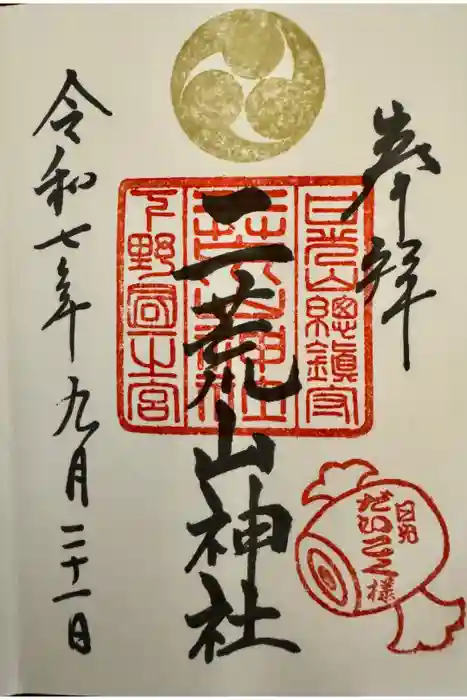 奉拝
日光山總鎮守
二荒山神社
下野國一宮
日光
だいこく様
二荒山神社
令和七年九月二十一日